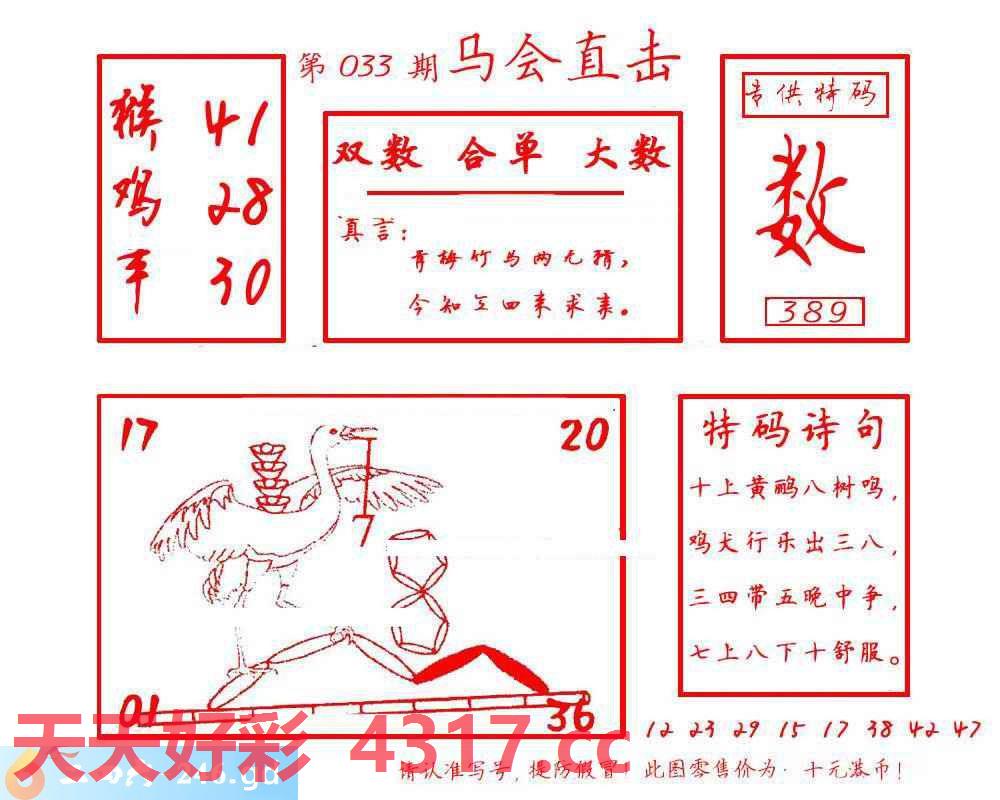 第 033 期 马会直击
猴 41
鸡 28
羊 30
双数 合单 大数
真言：
青梅竹马两无猜，
今知三四来求亲。
专供特码
数
389
17
20
7
01
36
特码诗句
十上黄鹂八树鸣，
鸡犬行乐出三八，
三四带五晚中争，
七上八下十舒服。
12 23 29 15 17 38 42 47
天天好彩 4317.cc
246.gd
请认准写号，提防假冒！此图零售价为：十元港币！